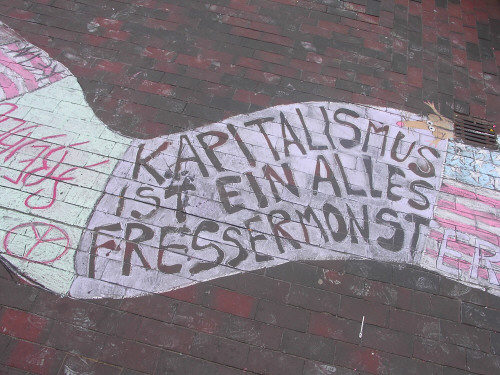 KAPITALISMUS
IST EIN ALLES
FRESSERMONSTER